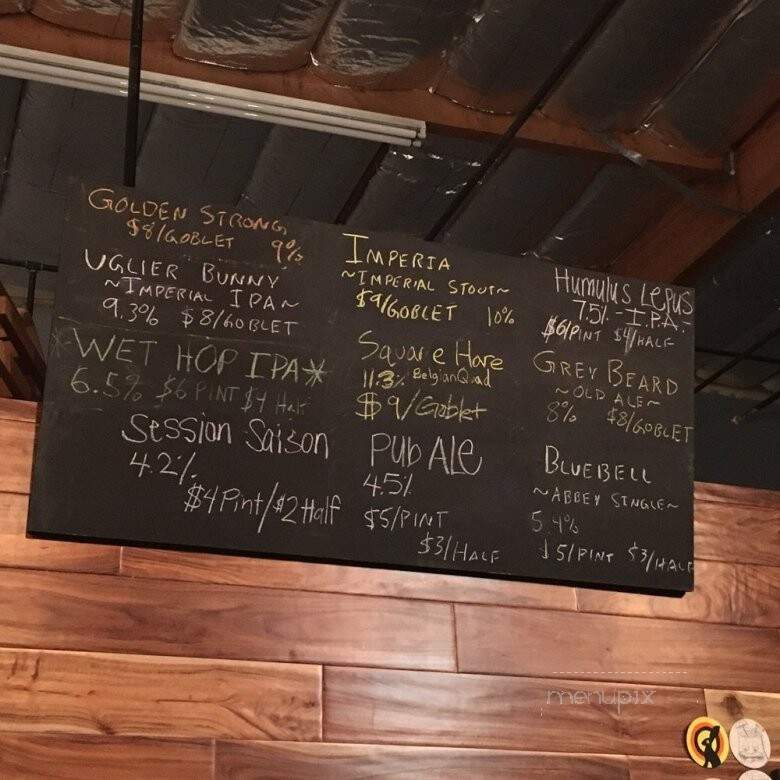 GOLDEN STRONG
$8/GOBLET 9%
UGLIER BUNNY
~IMPERIAL IPA~
9.3% $8/GOBLET
*WET HOP IPA*
6.5% $6 PINT $4 Half
Session Saison
4.2%
$4 Pint/$2 Half
IMPERIA
~IMPERIAL STOUT~
$9/GOBLET 10%
Square Hare
11.3% Belgian Quad
$9/Goblet
PUB ALE
4.5%
$5/PINT
$3/HALF
Humulus Lepus
7.5% - I.P.A. -
$6/PINT $4/HALF
GREY BEARD
~OLD ALE~
8% $8/GOBLET
BLUEBELL
~ABBEY SINGLE~
5.4%
$5/PINT $3/HALF
menupix